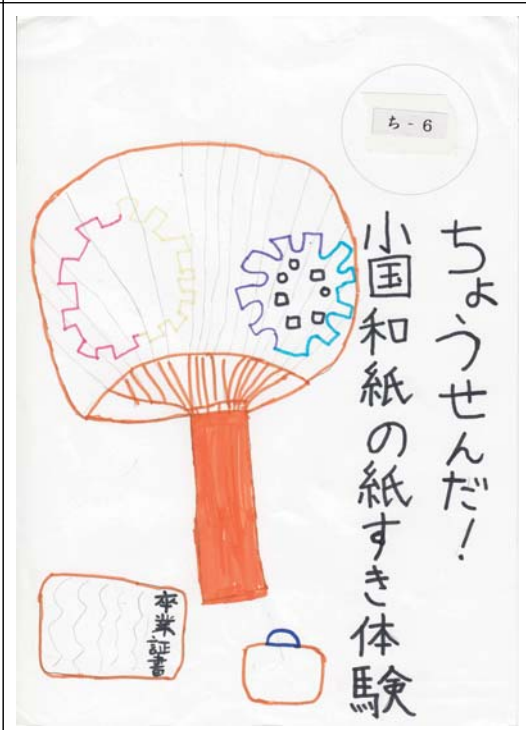 ち-6
ちょうせんだ!
小国和紙の紙すき体験
卒業証書